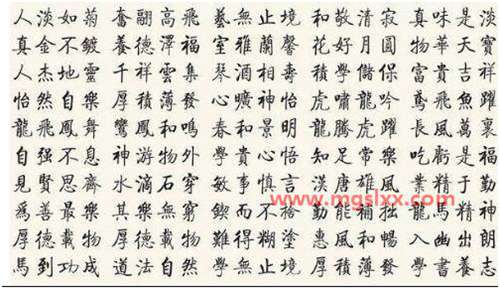 人淡如菊 奮翮高飛 藝無止境 和敬清寂 真味是淡
真金不鍍 養德澤福 室雅蘭馨 花好月圓 物華天寶
人杰地靈 千祥雲集 琴酒相壽 積學儲保 富貴吉祥
怡然自樂 厚積薄發 心曠神怡 虎嘯龍吟 鳶飛魚躍
龍飛鳳舞 鸞鳳和鳴 春和景明 龍騰虎躍 長風萬裏
自強不息 神游物外 學貴心悟 知足常樂 吃虧是福
見賢思齊 水滴石穿 敏事慎言 漢唐雄風 業精于勤
爲善最樂 其樂無窮 鍥而不捨 勤能補拙 龍馬精神
厚德載物 厚德載物 難得糊塗 惠風和暢 入幽出朗
馬到功成 道法自然 學無止境 厚積薄發 學書養志
www.mgslxx.com